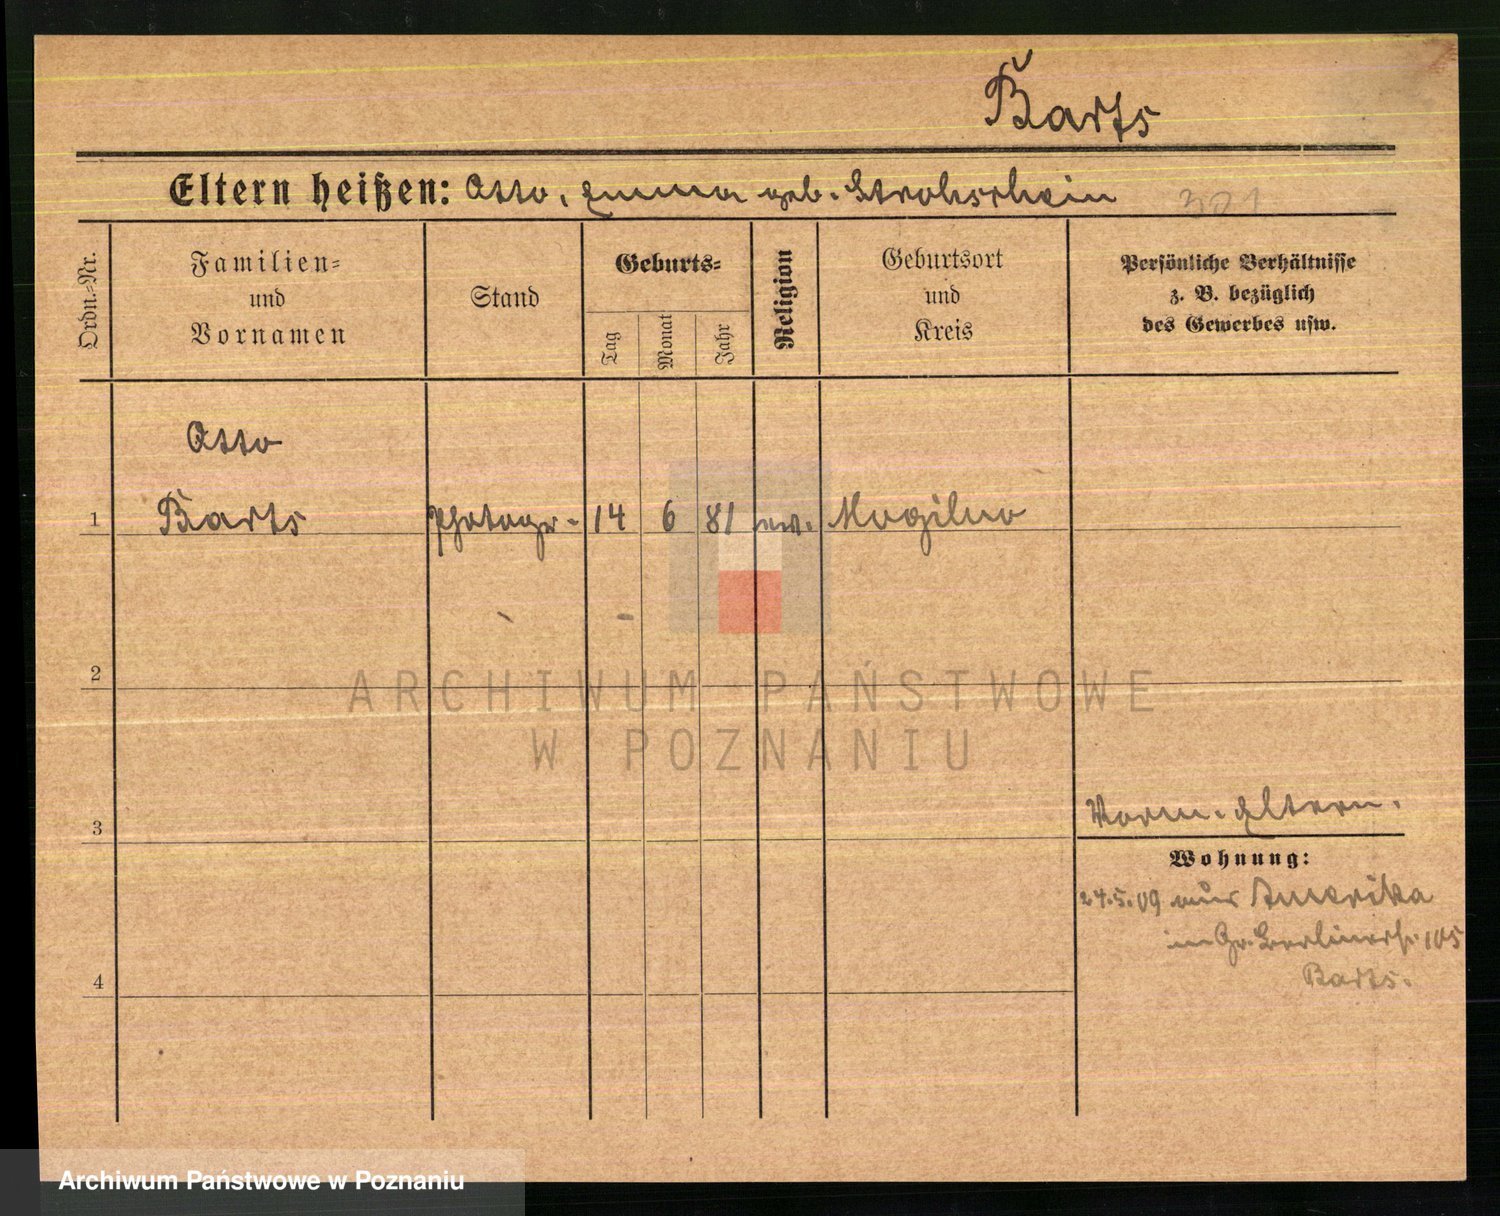 Barts
Eltern heißen: Otto, Emma geb. Strohschein
301
Ordn.=Nr.
Familien=
und
Vornamen
Stand
Geburts=
Tag
Monat
Jahr
Religion
Geburtsort
und
Kreis
Persönliche Verhältnisse
z. B. bezüglich
des Gewerbes usw.
Otto
1 Barts Photogr. 14 6 81 ev. Mogilno
2
3
Vorm. Eltern.
Wohnung:
24.5.09 aus Amerika
in Gr. Berlinerstr. 105
Barts.
4
ARCHIWUM PAŃSTWOWE
W POZNANIU
Archiwum Państwowe w Poznaniu